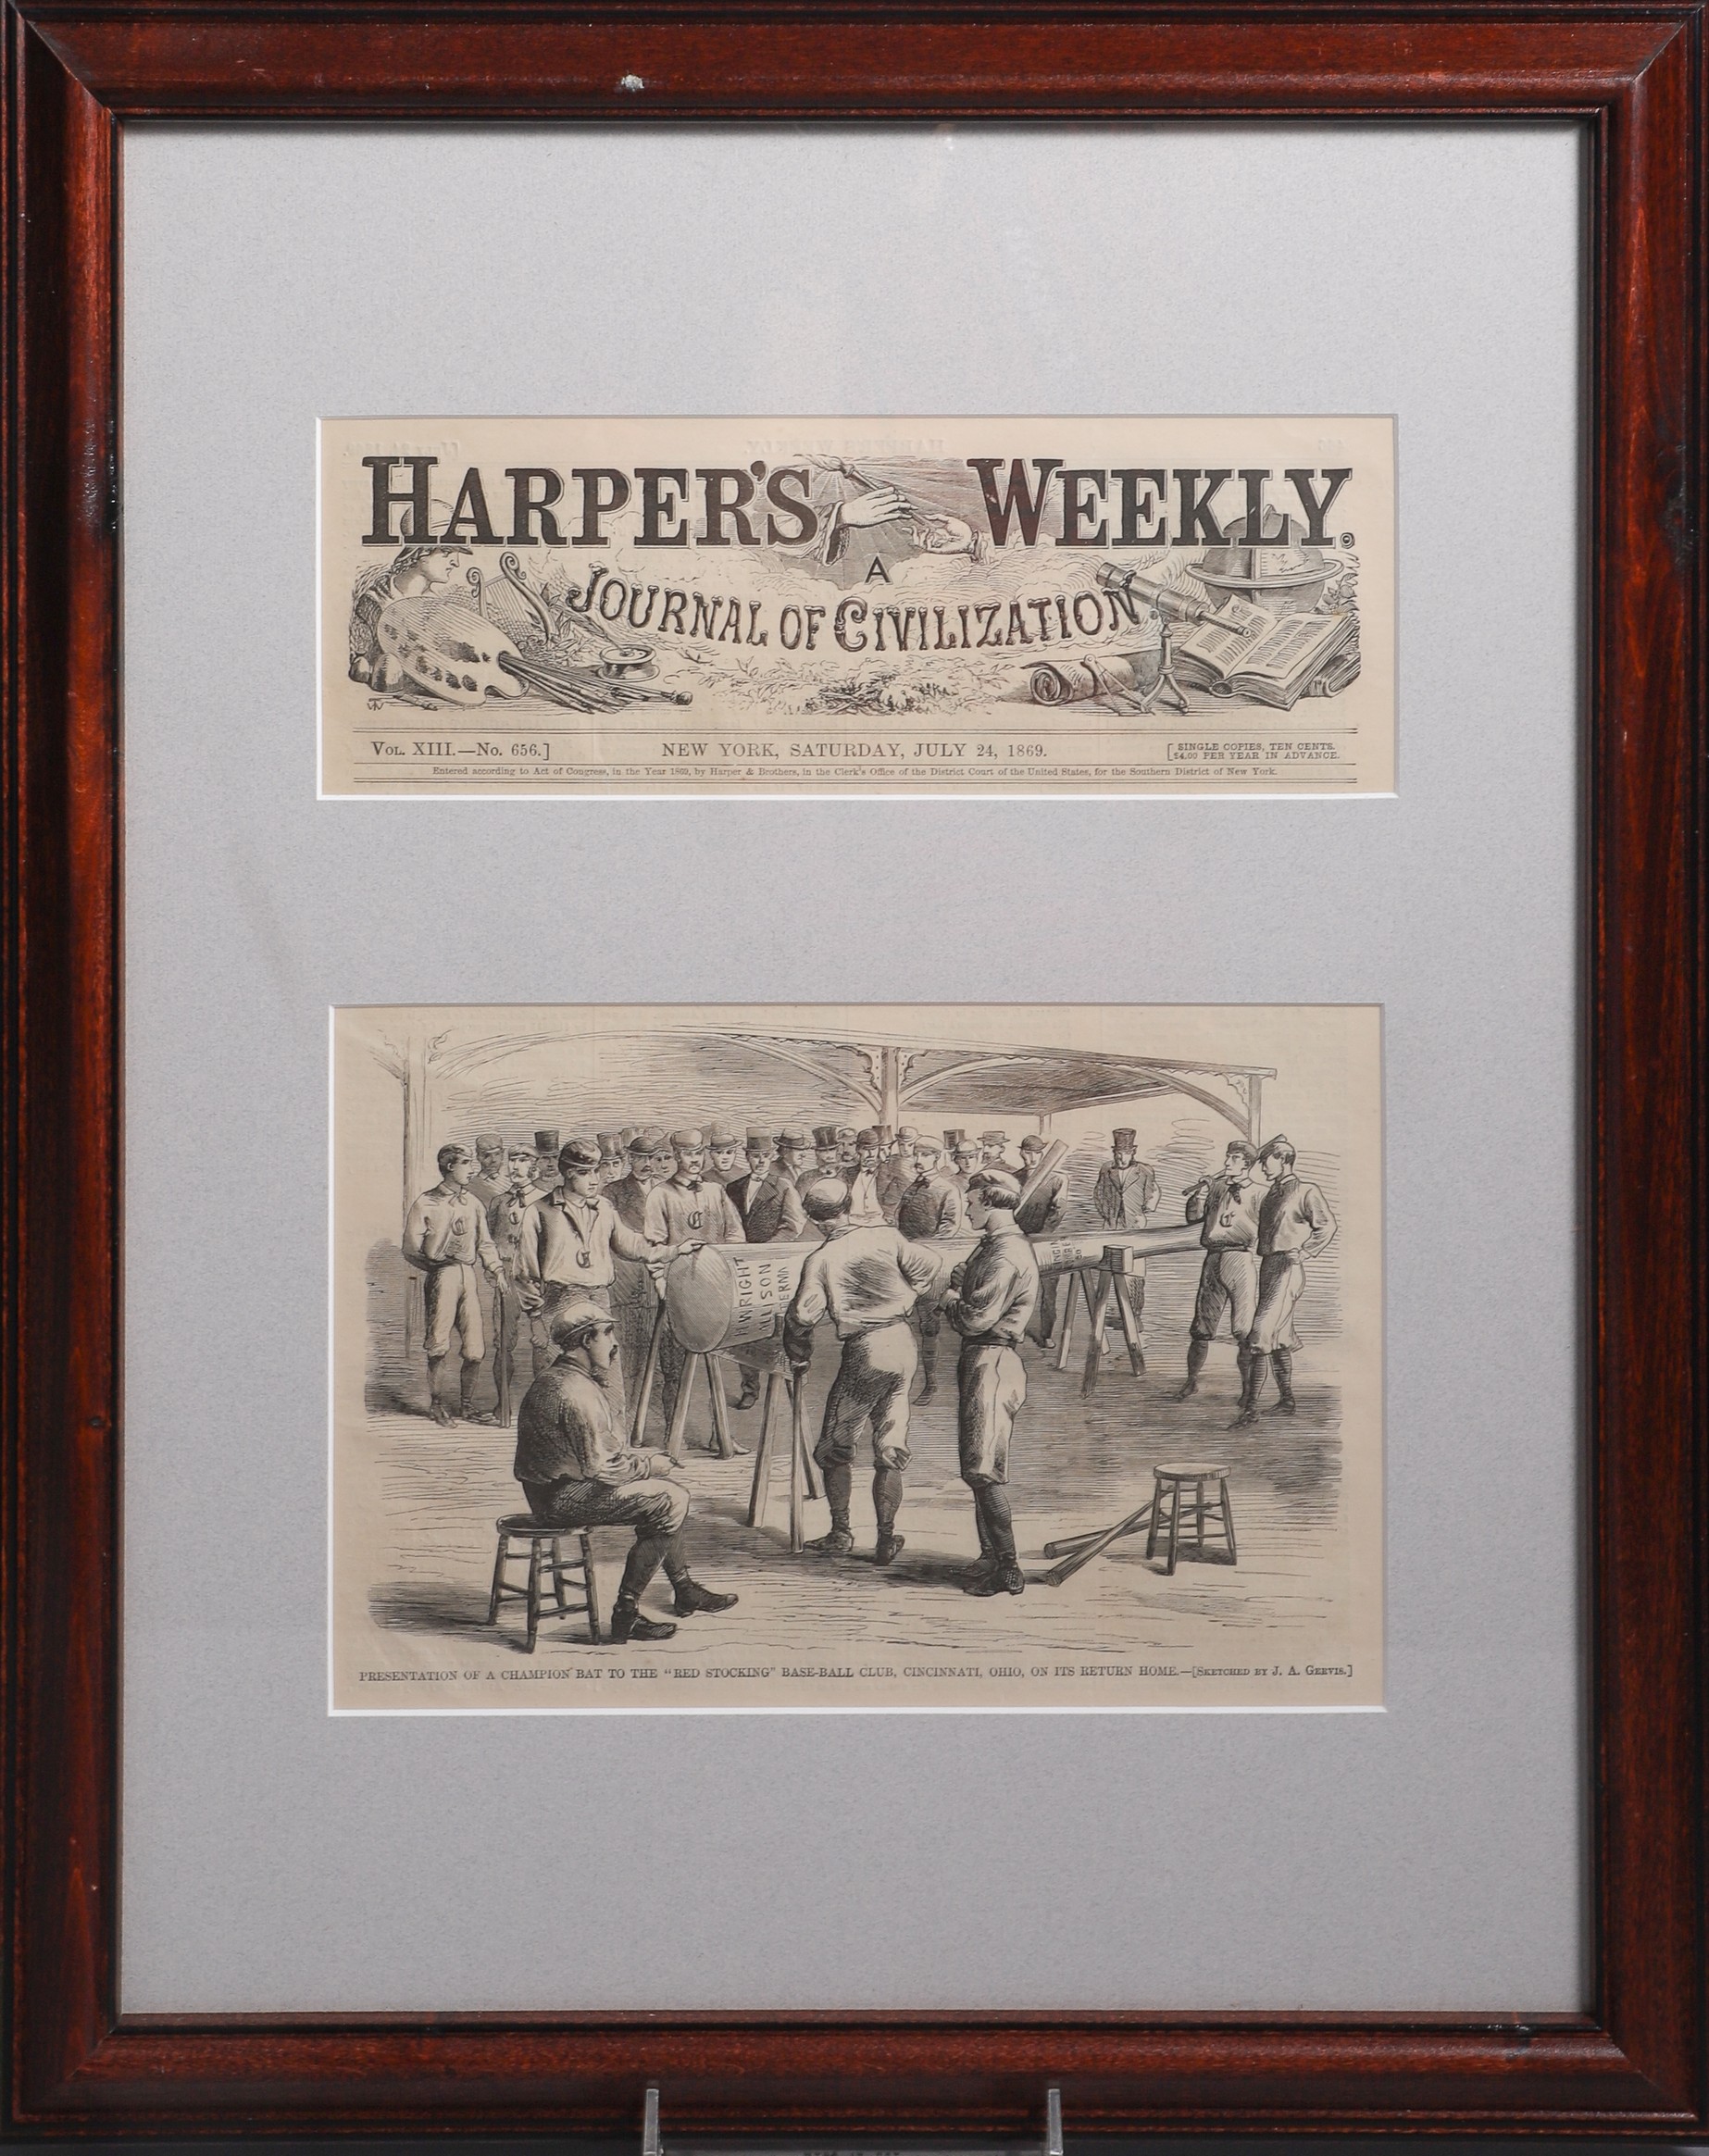 HARPER'S WEEKLY.
A
JOURNAL OF CIVILIZATION
VOL. XIII.—No. 656.]
NEW YORK, SATURDAY, JULY 24, 1869.
[SINGLE COPIES, TEN CENTS.
$4.00 PER YEAR IN ADVANCE.
Entered according to Act of Congress, in the Year 1869, by Harper & Brothers, in the Clerk's Office of the District Court of the United States, for the Southern District of New York.
C
C
C
C
C
H WRIGHT
ALLISON
TERMA
PRESENTATION OF A CHAMPION BAT TO THE "RED STOCKING" BASE-BALL CLUB, CINCINNATI, OHIO, ON ITS RETURN HOME.—[SKETCHED BY J. A. GERVIS.]